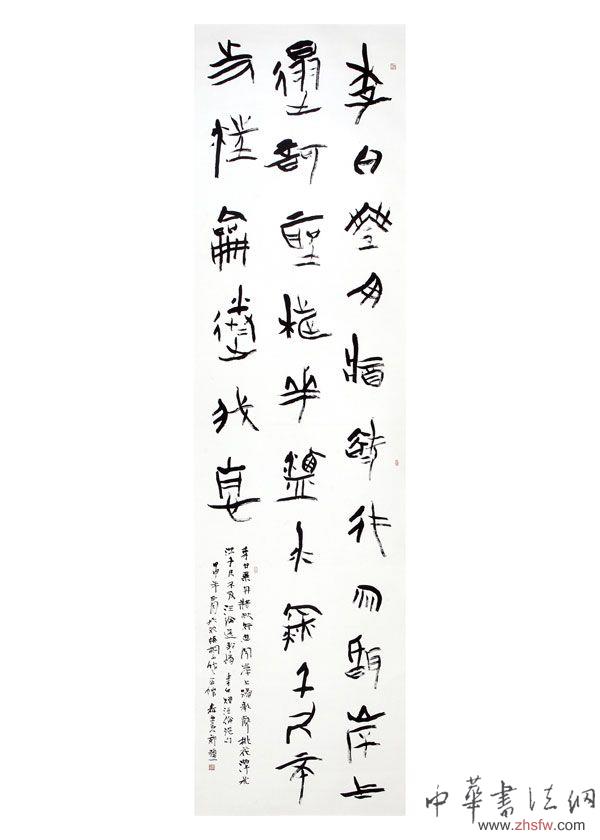 李白乘舟將欲行忽聞岸上
踏歌聲桃華潭水深千尺不
及汪侖送我情
李白乘舟將欲行忽聞岸上踏歌聲桃花潭水
深千尺不及汪倫送我情 李白贈汪倫
甲申年
中華書法網
www.zhsfw.com